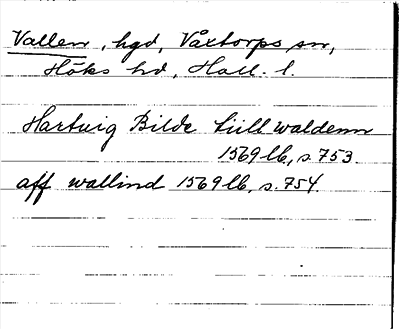 Vallen, hgd, Våxtorps sn,
Höks hd, Hall. l.
Hartvig Bilde tiill waldenn
1569 lb, s. 753.
aff wallind 1569 lb, s. 754.